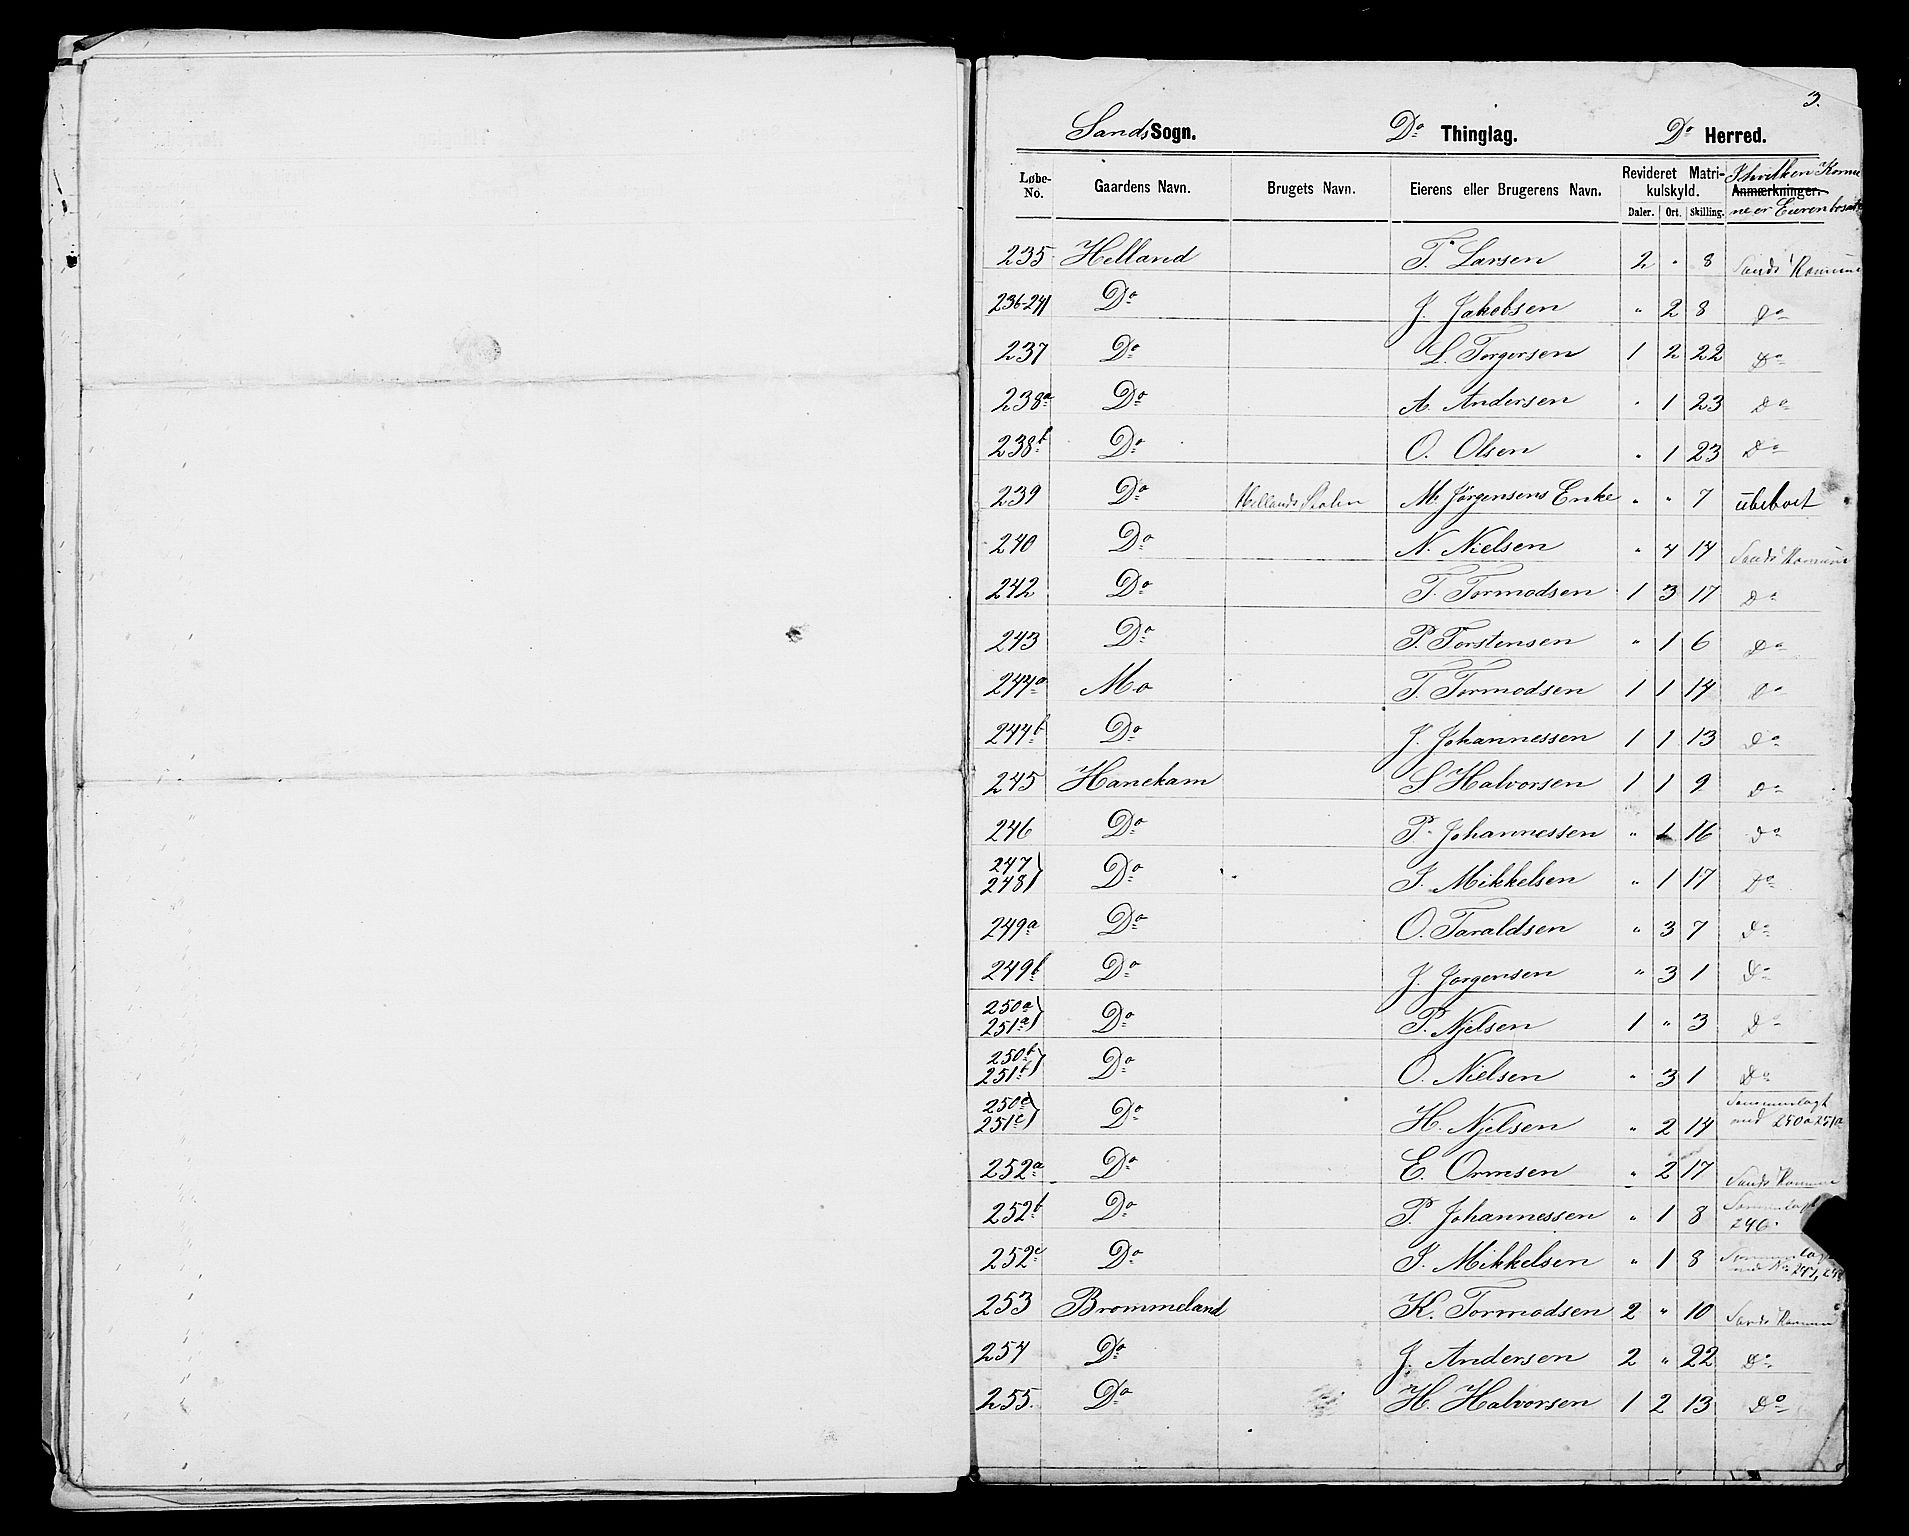 3.
Sands Sogn. Do Thinglag. Do Herred.
Løbe-No. Gaardens Navn. Brugets Navn. Eierens eller Brugerens Navn. Revideret Matrikulskyld. I hvilken Komu
Anmærkninger.
Daler. Ort. Skilling. ne er Eieren bosat
235 Helland T. Larsen 2 " 8 Sands Komune
236-241 Do J. Jakobsen " 2 8 Do
237 Do L. Torgersen 1 2 22 Do
238a Do A. Andersen " 1 23 Do
238b Do O. Olsen " 1 23 Do
239 Do Hellands M. Jørgensens Enke " " 7 ubeboet
240 Do N. Nielsen " 4 14 Sands Komune
242 Do T. Tormodsen 1 3 17 Do
243 Do P. Torstensen " 1 6 Do
244a Mo T. Tormodsen 1 1 14 Do
244b Do J. Johannessen 1 1 13 Do
245 Hanekam S Halvorsen 1 1 9 Do
246 Do P. Johannessen " 1 16 Do
247
248 Do I. Mikkelsen " 1 17 Do
249a Do O. Taraldsen " 3 7 Do
249b Do J. Jorgensen " 3 1 Do
250a
251a Do P. Njelsen 1 " 3 Do
250b
251b Do O. Nielsen " 3 1 Do
250c Sammenlagt
251c Do H. Njelsen " 2 14 med 250a 251a
252a Do E. Ormsen " 2 17 Sands Komune
252b Do P. Johannessen " 1 8 Sammenlagt
246.
252c Do I. Mikkelsen " 1 8 Sammenlagt
med No 247, 248
253 Brommeland K. Tormodsen 2 " 10 Sands Komune
254 Do J. Andersen 2 " 22 Do
255. Do H. Halvorsen 1 2 13 Do